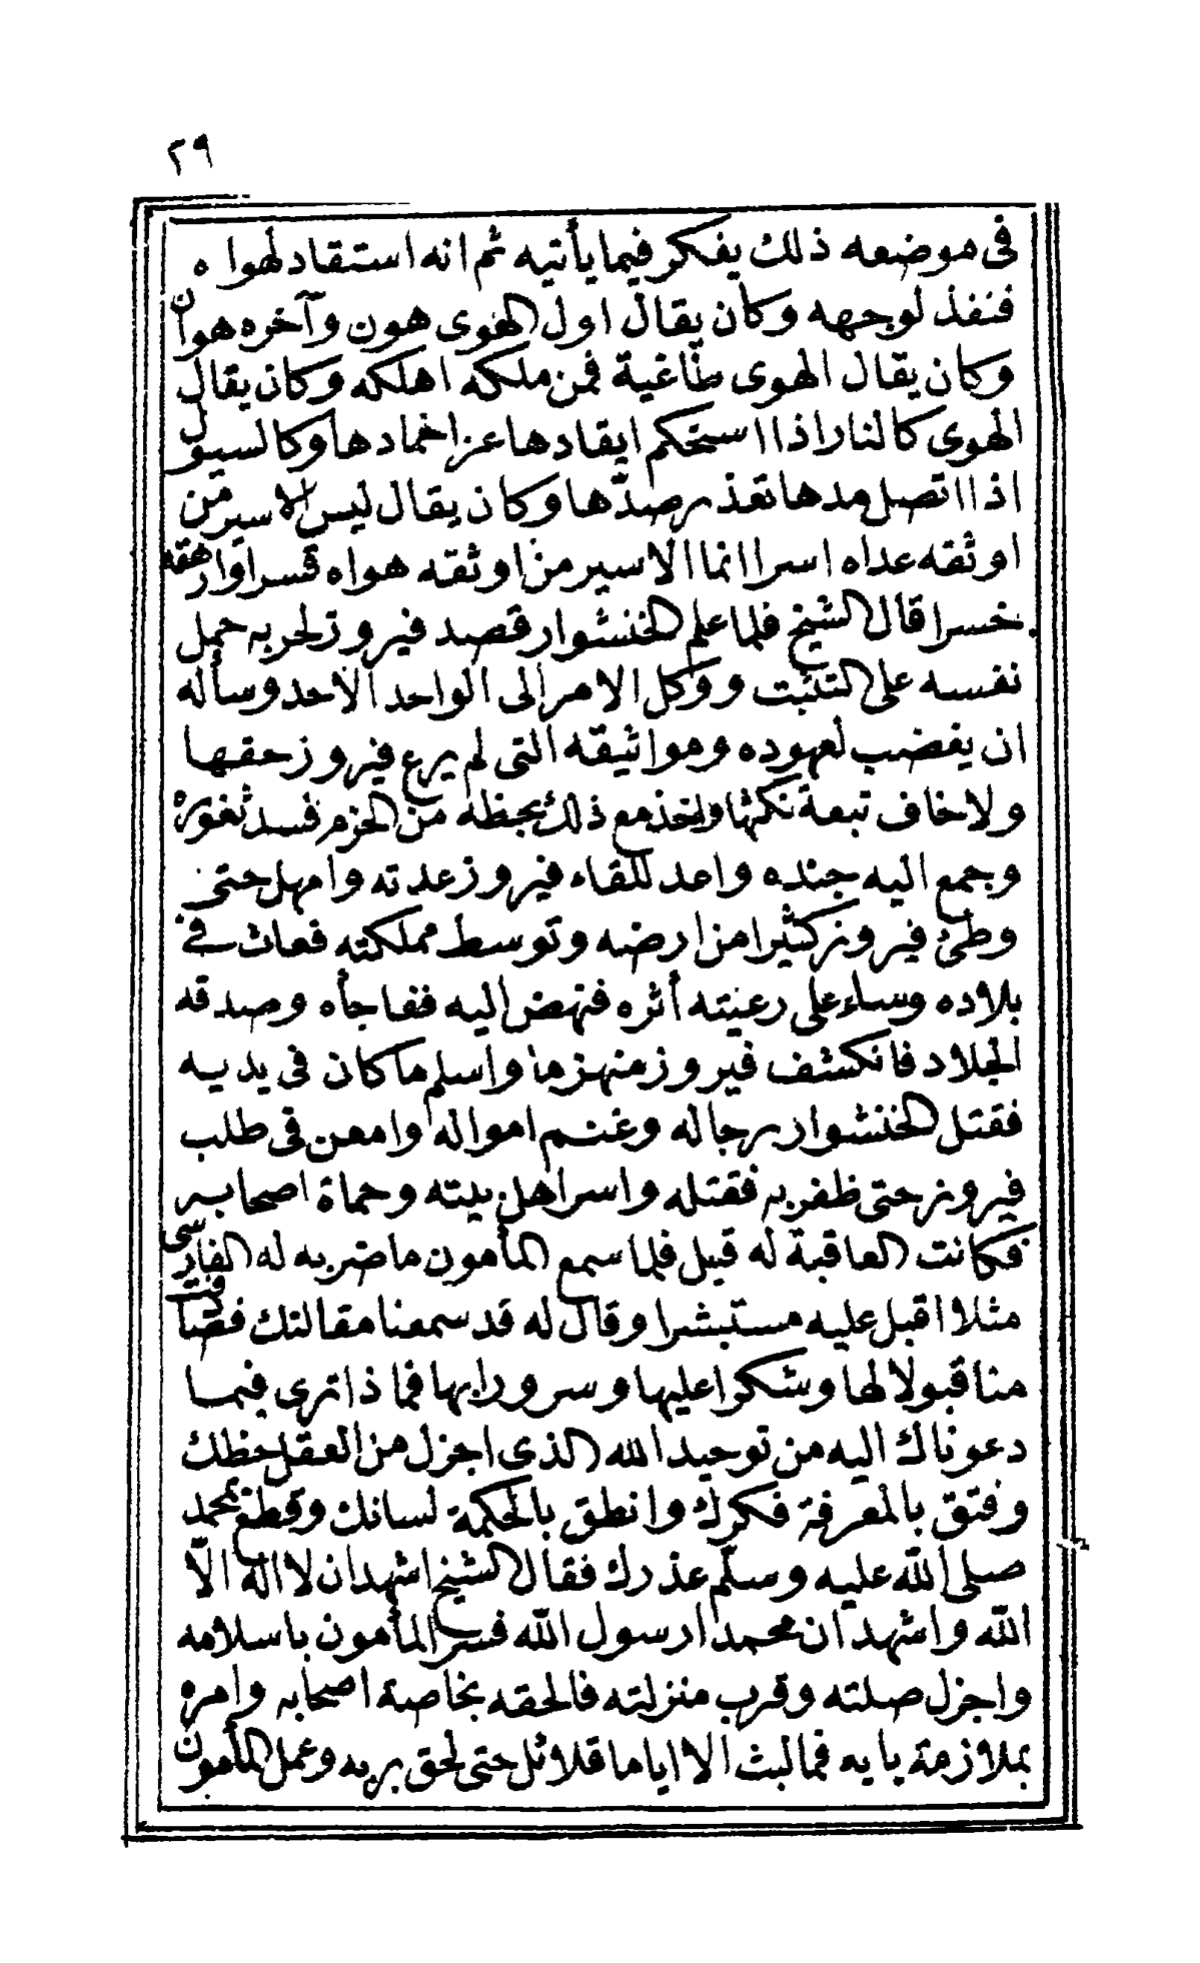 ٢٩
فى موضعه ذلك يفكر فيما يأتيه ثم انه استقاد لهواه
فنفذ لوجهه وكان يقال اول الهوى هون وآخره هوان
وكان يقال الهوى طاغية فمن ملكه اهلكه وكان يقال
الهوى كالنار اذا استحكم ايقادها عز اخمادها وكالسيول
اذا اتصل مدها تعذر صدّها وكان يقال ليس الاسير من
اوثقه عداه اسرا انما الاسير من اوثقه هواه قسرا وارهقه
خسرا قال الشيخ فلما علم الخنشوار قصد فيروز لحربه حمل
نفسه على التثبت ووكل الامر الى الواحد الاحد وسأله
ان يغضب لعهوده ومواثيقه التى لم يرع فيروز حقها
ولا خاف تبعة نكثها واخذ مع ذلك بحظه من الحزم فسد ثغوره
وجمع اليه جنده واعد للقاء فيروز عدته وامهل حتى
وطئ فيروز كثيرا من ارضه وتوسط مملكته فعاث فى
بلاده وساء على رعيته أثره فنهض اليه ففاجأه وصدقه
الجلاد فانكشف فيروز منهزما واسلم ما كان فى يديه
فقتل الخنشوار رجاله وغنم امواله وامعن فى طلب
فيروز حتى ظفر به فقتله واسر اهل بيته وحماة اصحابه
فكانت العاقبة له قيل فلما سمع المأمون ما ضربه له الفارسى
مثلا اقبل عليه مستبشرا وقال له قد سمعنا مقالتك فصادفت
منا قبولا لها وشكرا عليها وسرورا بها فما ذا ترى فيما
دعوناك اليه من توحيد الله الذى اجزل من العقل حظك
وفتق بالمعرفة فكرك وانطق بالحكمة لسانك وقطع بمحمد
صلى الله عليه وسلّم عذرك فقال الشيخ اشهد ان لا اله الّا
الله واشهد ان محمدا رسول الله فسر المأمون باسلامه
واجزل صلته وقرب منزلته فالحقه بخاصة اصحابه وامره
بملازمة بابه فما لبث الا اياما قلائل حتى لحق بربه وعمل المأمون